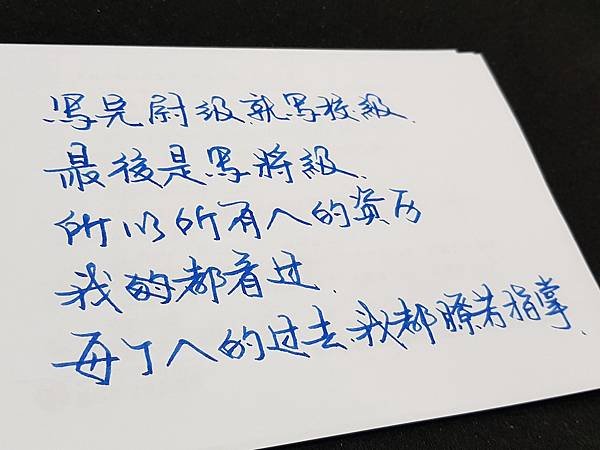 写完尉級就写校級.
最後是写將級.
所以所有人的資历
我的都看过.
每个人的过去,我都瞭若指掌.